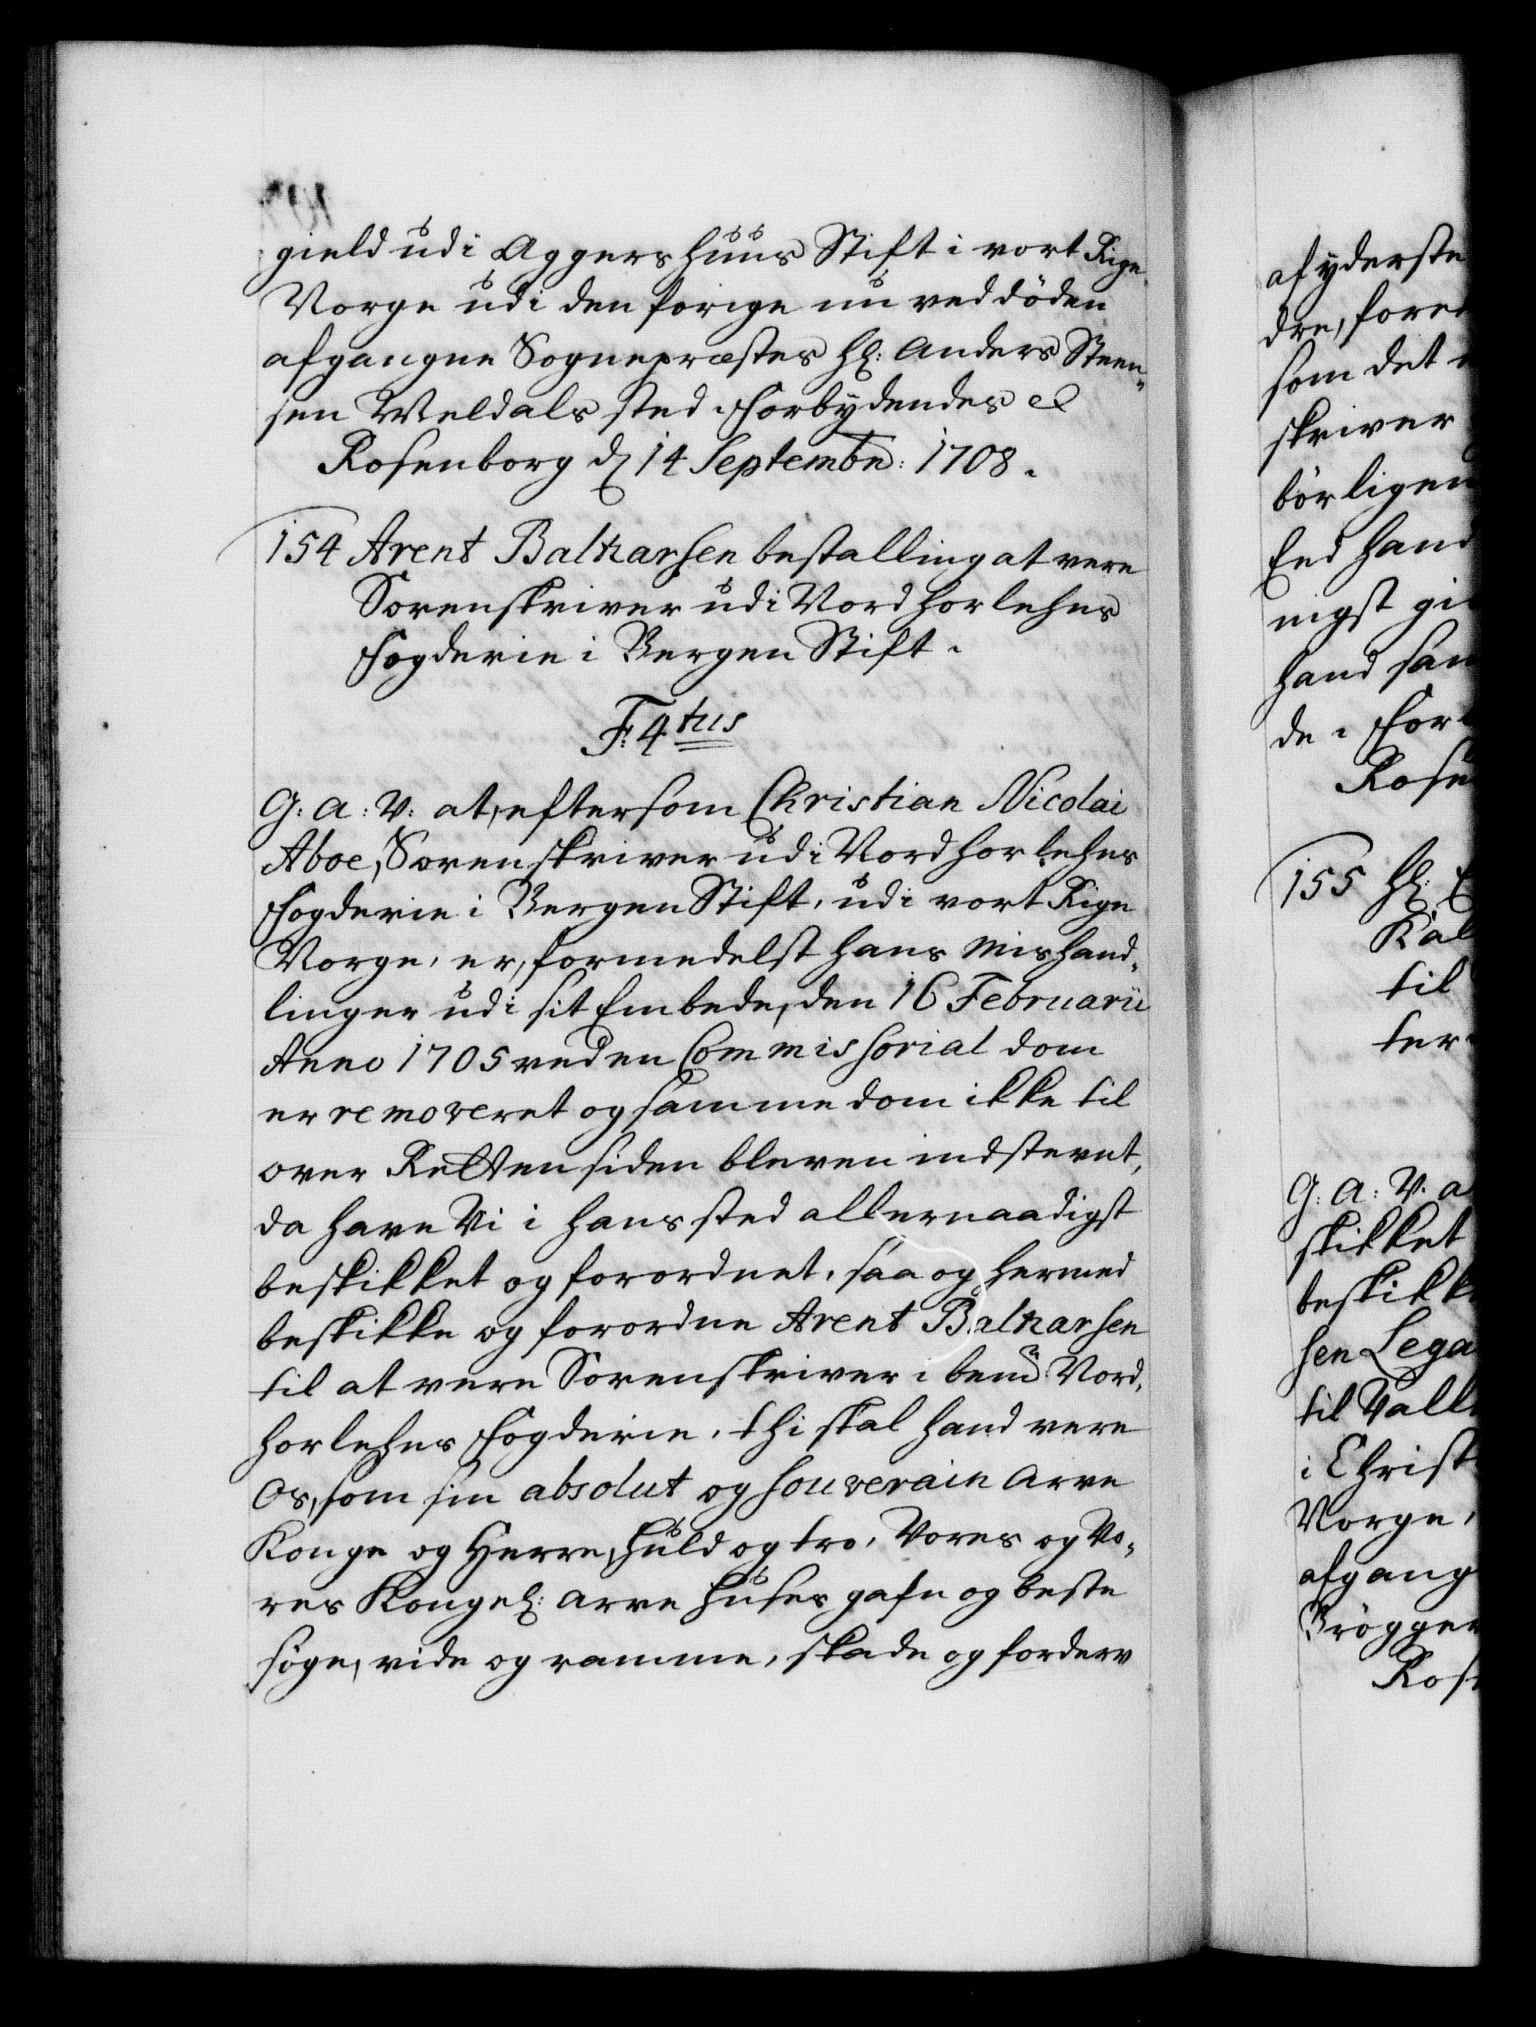 gield udi Aggershuus Stift i vort Rige
Norge udi den forige nu ved döden
afgangne Sognepræstes Hl: Anders Steen„
sen Meldals sted. Forbydendes &
Rosenborg d 14 Septembr: 1708.
154 Arent Baltzarsen bestalling at vere
Sorenskriver udi Nordhorlehns
Fogderie i Bergen Stift.
F: 4tus
G: A: V: at, eftersom Christian Nicolai
Aboe, Sorenskriver udi Nordhorlehns
Fogderie i Bergen Stift, udi vort Rige
Norge, er, formedelst hans mishand„
linger udi sit Embede, den 16 Februarii
Anno 1705 ved en Commissorial dom
er removeret og samme dom ikke til
over Retten siden bleven indstevnt,
da have Vi i hans sted allernaadigst
beskikket og forordnet, saa og hermed
beskikke og forordne Arent Baltzarsen
til at vere Sorenskriver i bemt: Nord„
horlehns Fogderie, thi skal hand vere
Os, som sin absolut og souverain Arve
Konge og Herre, huld og tro, Vores og Vo„
res Kongel: arve huses gafn og beste
söge, vide og ramme, skade og forderv
af yderste
dre, fore
som det
skriver
börligen
End hand
nigst gi
hand sam
de. For
Rose
155 Hl:
Kal
til
ter
G: A: V: a
skikket
beskikk
sen Lega
til Vall
i Christ
Norge,
afgang
Brögger
Ros